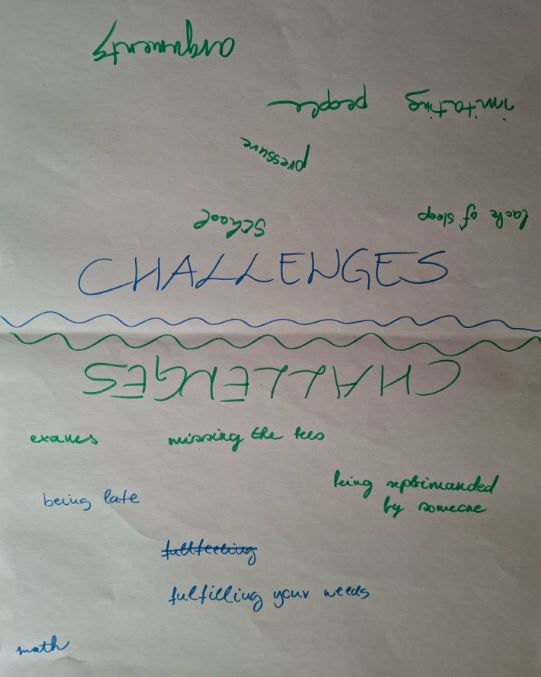 arguments
people
pressure
lack of sleep
school
CHALLENGES
CHALLENGES
exames
missing the bus
being reprimanded
by someone
being late
fulfilling your needs
math